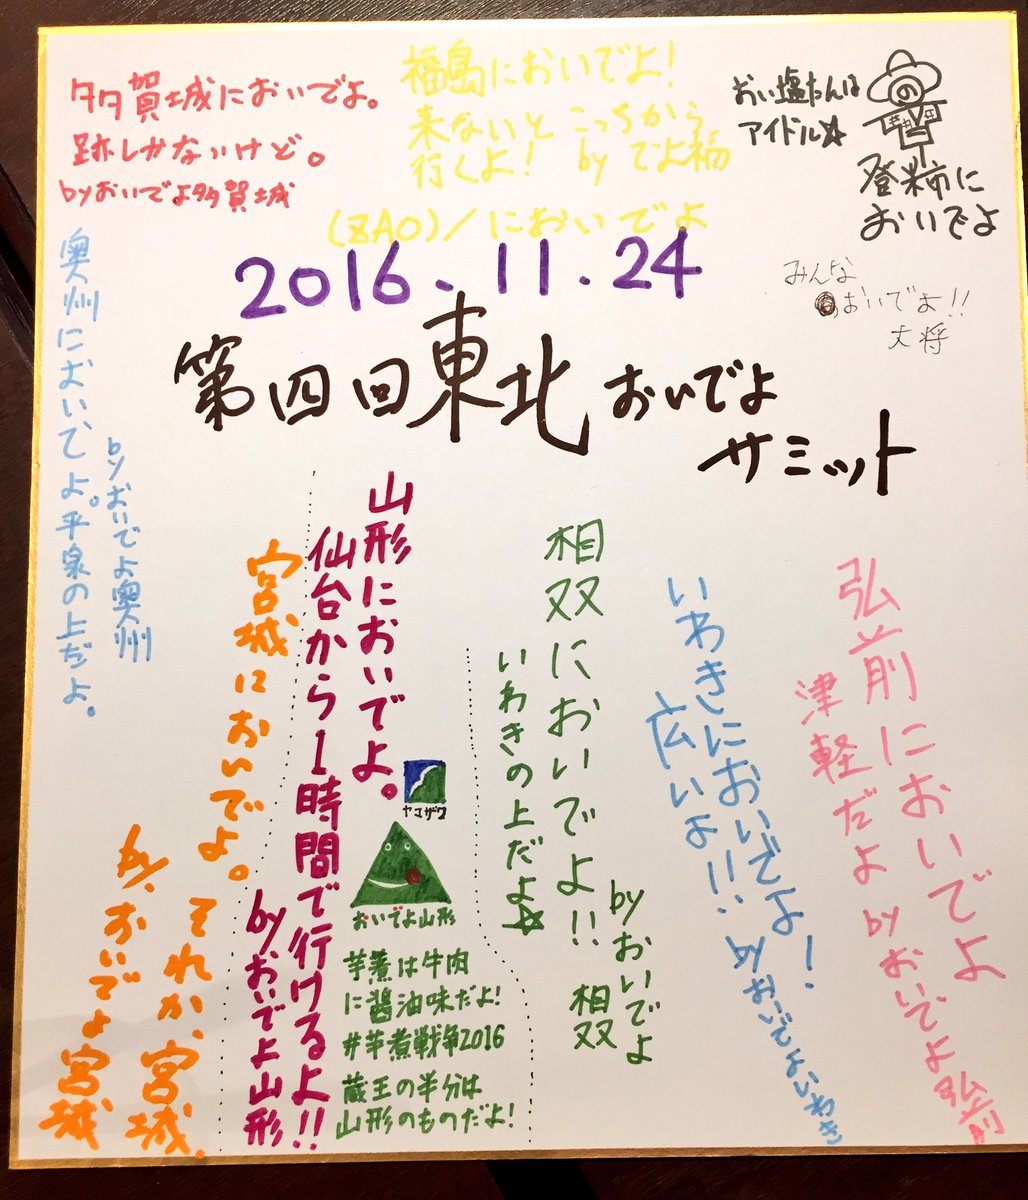 多賀城においでよ。
跡しかないけど。
byおいでよ多賀城
福島においでよ!
来ないと こっちから
行くよ! by でよ福
(ZAO)/においでよ
おい塩たんは
アイドル☆
の
登米市に
おいでよ
みんな
おいでよ!!
大将
2016.11.24
第四回東北おいでよ
サミット
奥州においでよ。平泉の上だよ。
byおいでよ奥州
宮城においでよ。それか、宮城。
by.おいでよ宮城
山形においでよ。
仙台から1時間で行けるよ!!
byおいでよ山形
ヤマザワ
おいでよ山形
芋煮は牛肉
に醤油味だよ!
#芋煮戦争2016
蔵王の半分は
山形のものだよ!
相双においでよ!!
いわきの上だよ☆
byおいでよ
相双
いわきにおいでよ!
広いよ!!
byおいでよいわき
弘前においでよ
津軽だよ byおいでよ弘前